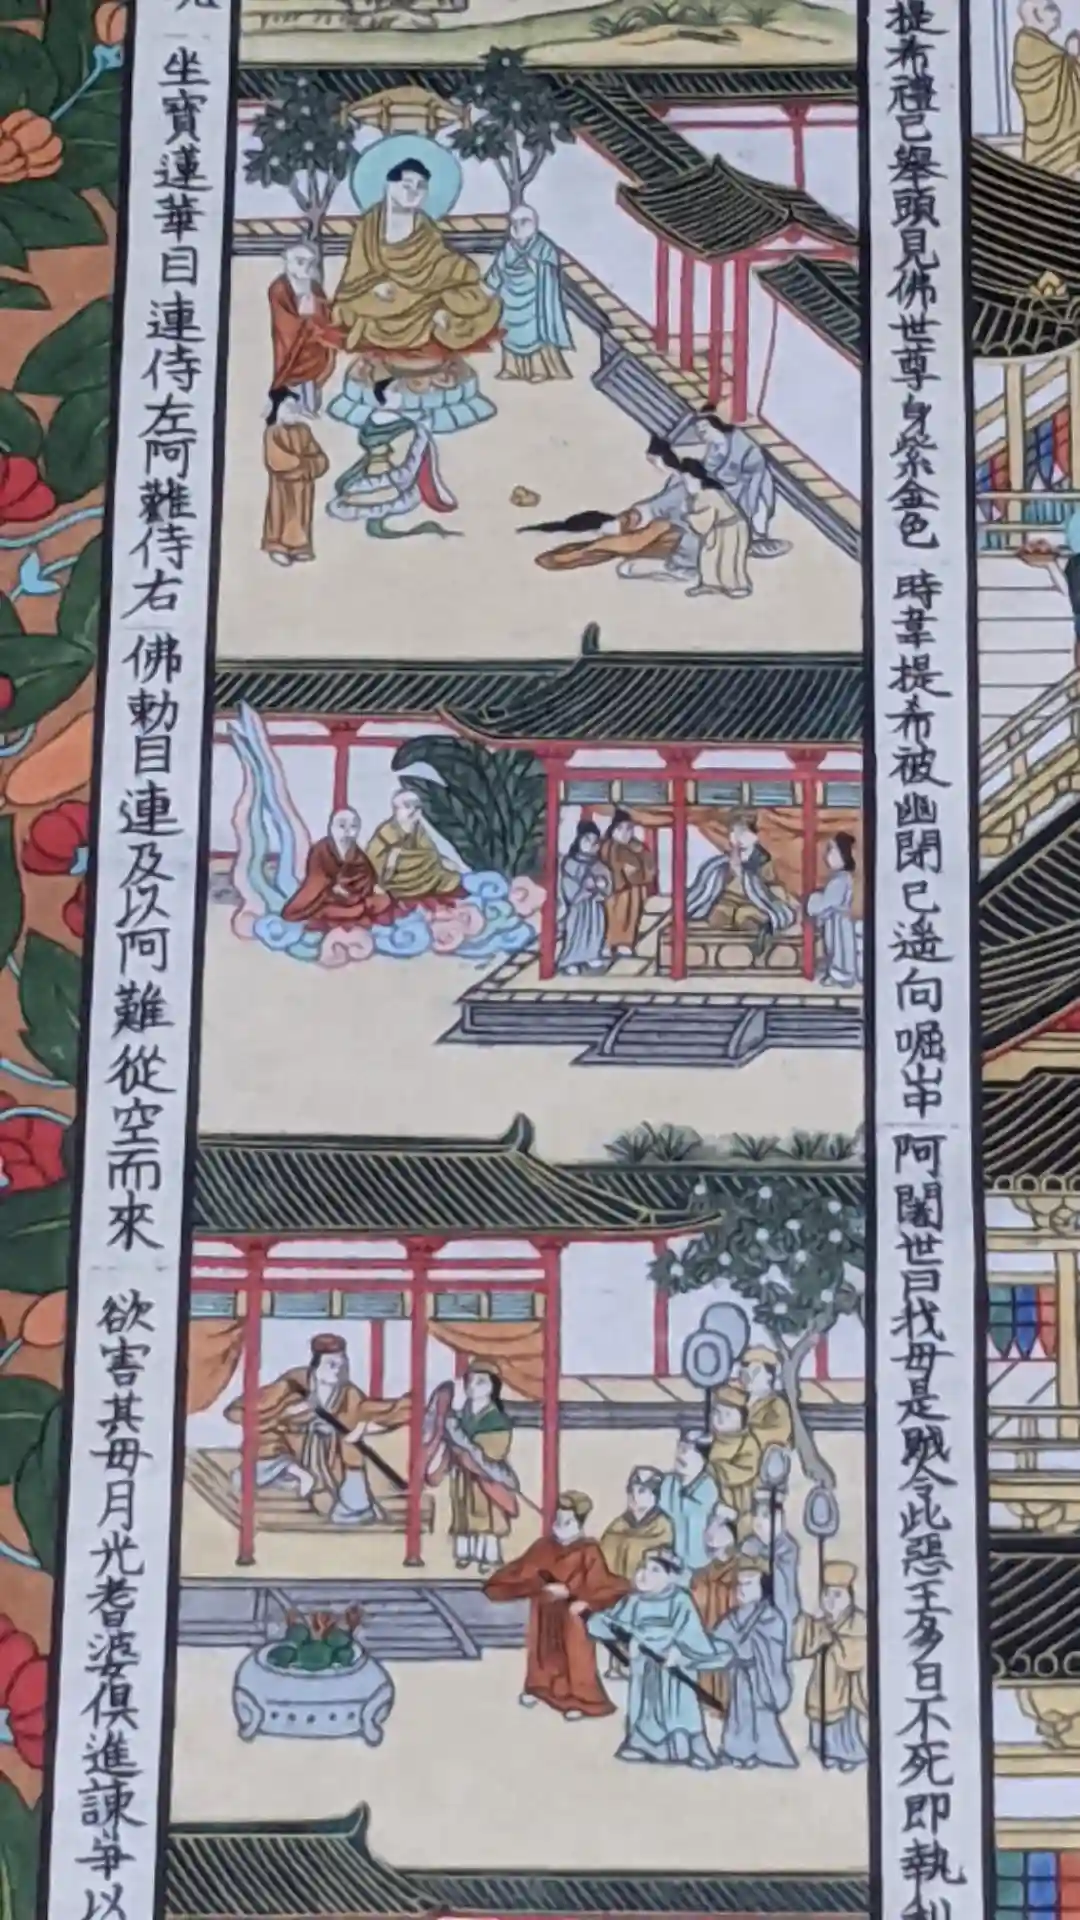 提希禮已舉頭見佛世尊身紫金色
時韋提希被幽閉已遙向崛山中
阿闍世曰我母是賊令此惡王多日不死即執利
坐寶蓮華目連侍左阿難侍右
佛勅目連及以阿難從空而來
欲害其母月光耆婆俱進諫爭以